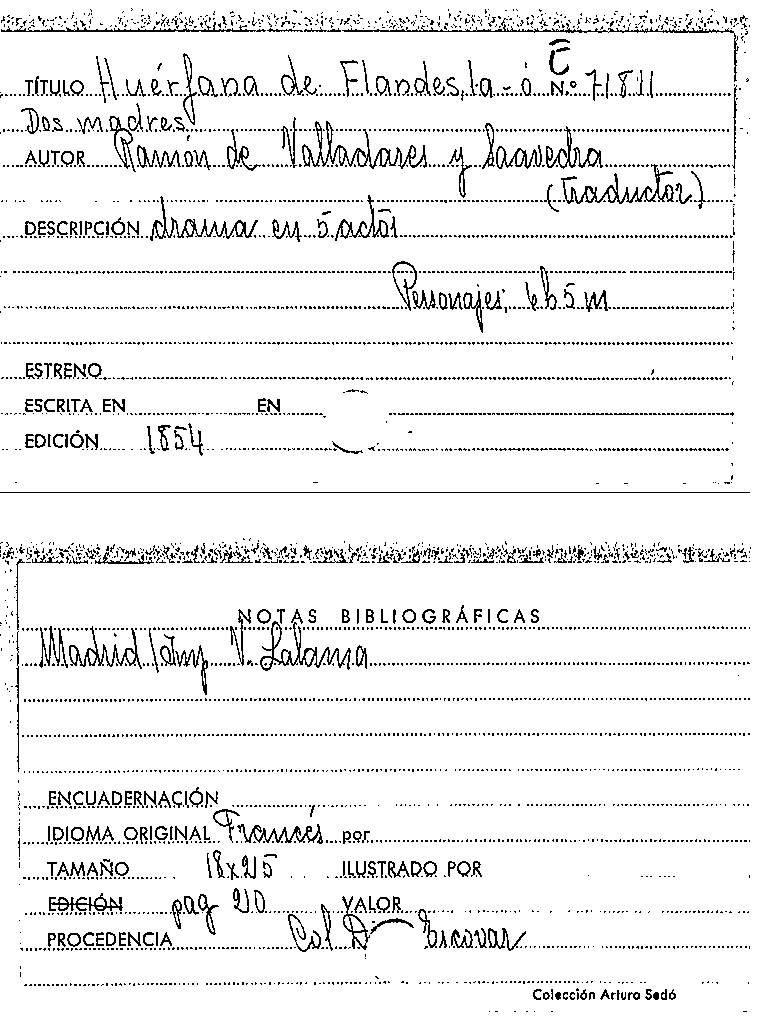 TÍTULO Huérfana de Flandes, la - ó N.º 71811
Dos madres
AUTOR Ramón de Valladares y Saavedra
(traductor)
DESCRIPCIÓN drama en 5 actos
Personajes, 6 h 5 m
ESTRENO
ESCRITA EN EN
EDICIÓN 1854
NOTAS BIBLIOGRÁFICAS
Madrid Imp V. Lalama
ENCUADERNACIÓN
IDIOMA ORIGINAL Francés por
TAMAÑO 18x25 ILUSTRADO POR
EDICIÓN pag 20 VALOR
PROCEDENCIA Col D Escovar
Colección Arturo Sedó